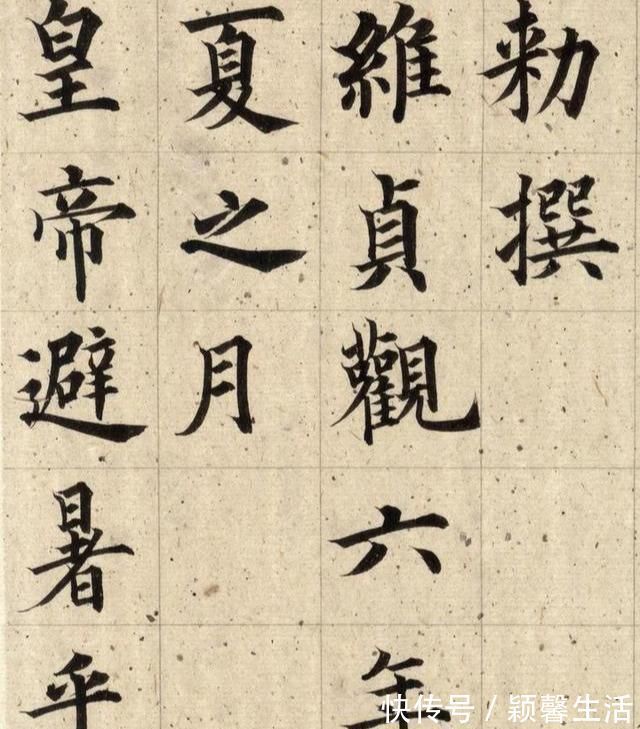 勅撰
維貞觀六年
夏之月
皇帝避暑乎
快传号/颖馨生活